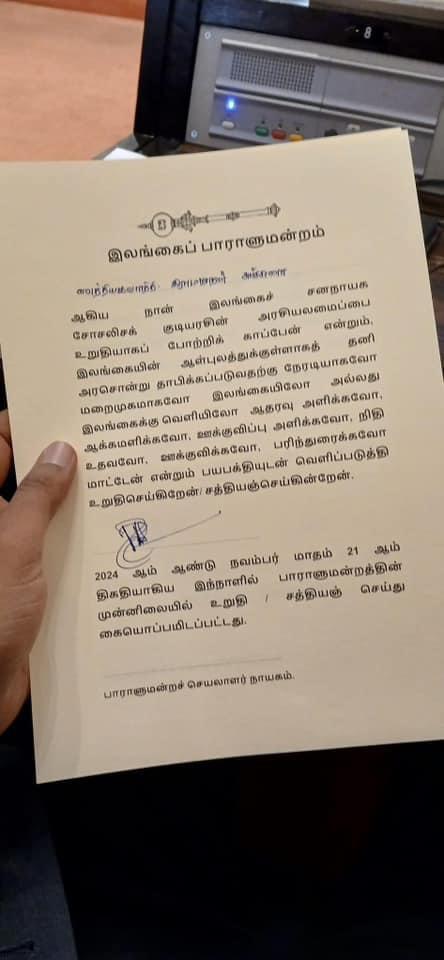 8
இலங்கைப் பாராளுமன்றம்
ஆகிய நான் இலங்கைச் சனநாயக
சோசலிசக் குடியரசின் அரசியலமைப்பை
உறுதியாகப் போற்றிக் காப்பேன் என்றும்,
இலங்கையின் ஆள்புலத்துக்குள்ளாகத் தனி
அரசொன்று தாபிக்கப்படுவதற்கு நேரடியாகவோ
மறைமுகமாகவோ இலங்கையிலோ அல்லது
இலங்கைக்கு வெளியிலோ ஆதரவு அளிக்கவோ,
ஆக்கமளிக்கவோ, ஊக்குவிப்பு அளிக்கவோ, நிதி
உதவவோ, ஊக்குவிக்கவோ, பரிந்துரைக்கவோ
மாட்டேன் என்றும் பயபக்தியுடன் வெளிப்படுத்தி
உறுதிசெய்கிறேன்/ சத்தியஞ்செய்கின்றேன்.
2024 ஆம் ஆண்டு நவம்பர் மாதம் 21 ஆம்
திகதியாகிய இந்நாளில் பாராளுமன்றத்தின்
முன்னிலையில் உறுதி / சத்தியஞ் செய்து
கையொப்பமிடப்பட்டது.
பாராளுமன்றச் செயலாளர் நாயகம்.